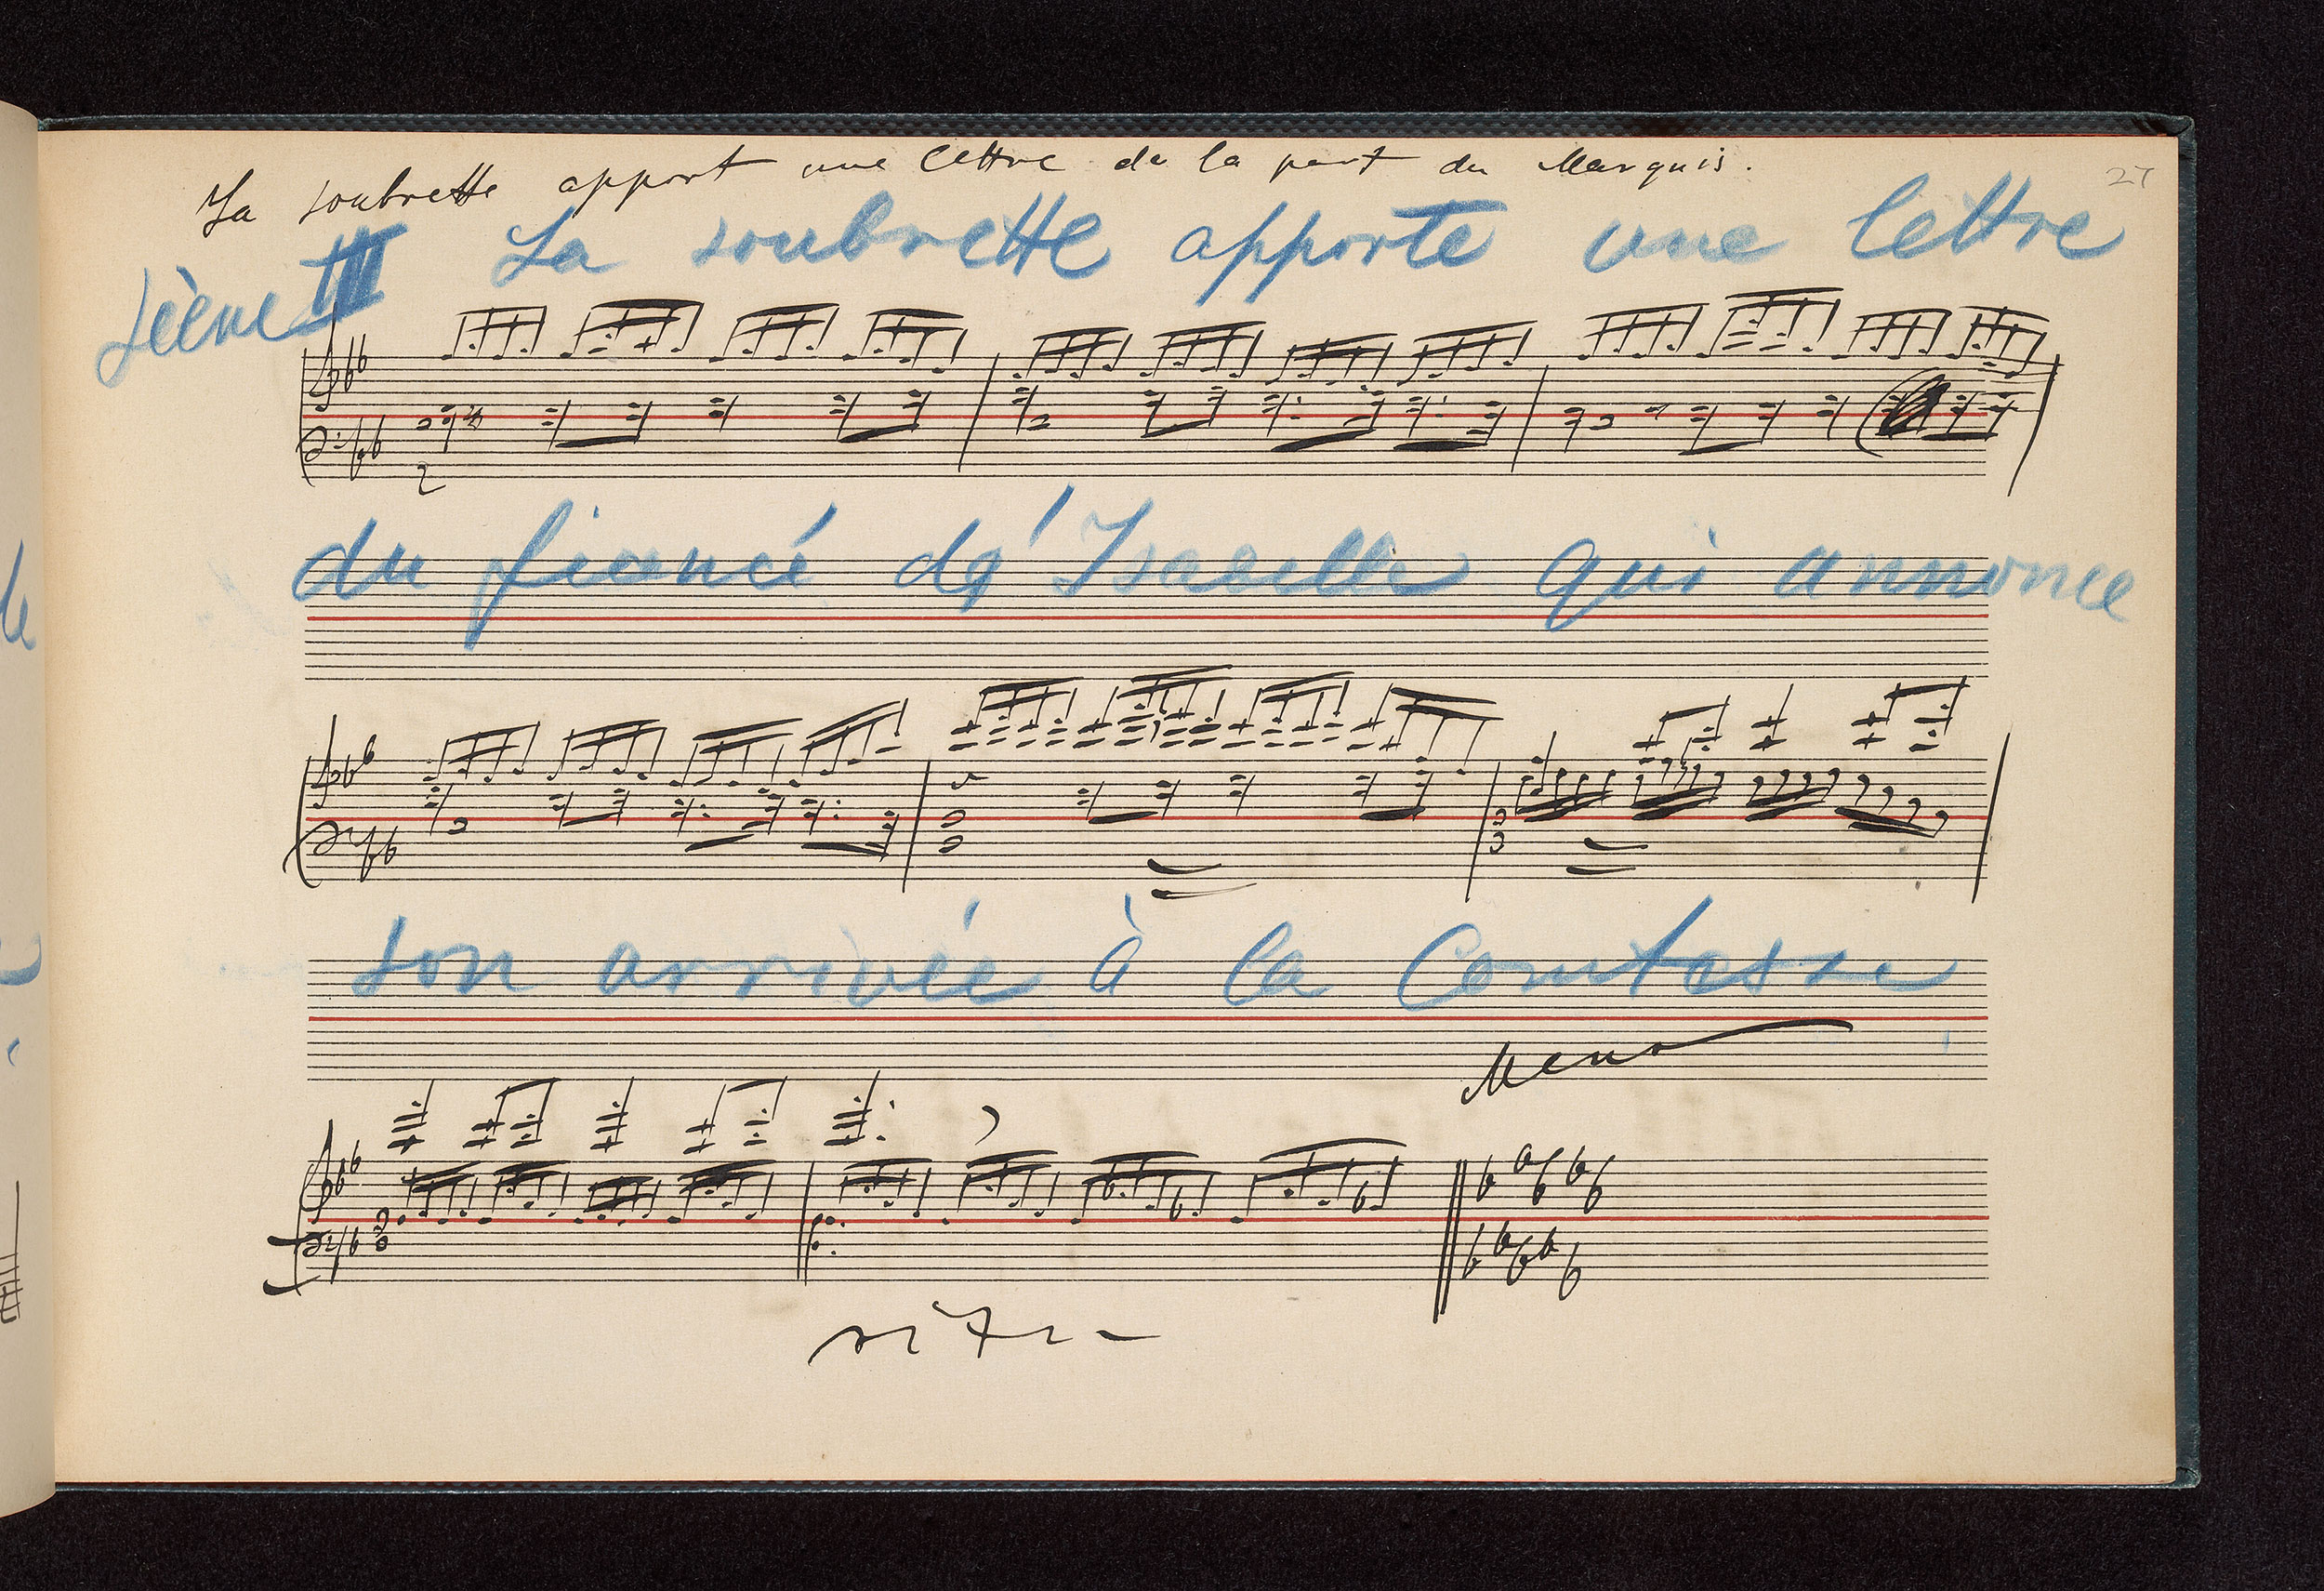 La soubrette apport une lettre de la part du Marquis.
27
Scène III La soubrette apporte une lettre
du fiancé de' Isabelle qui annonce
son arrivée à la Comtesse
Meno